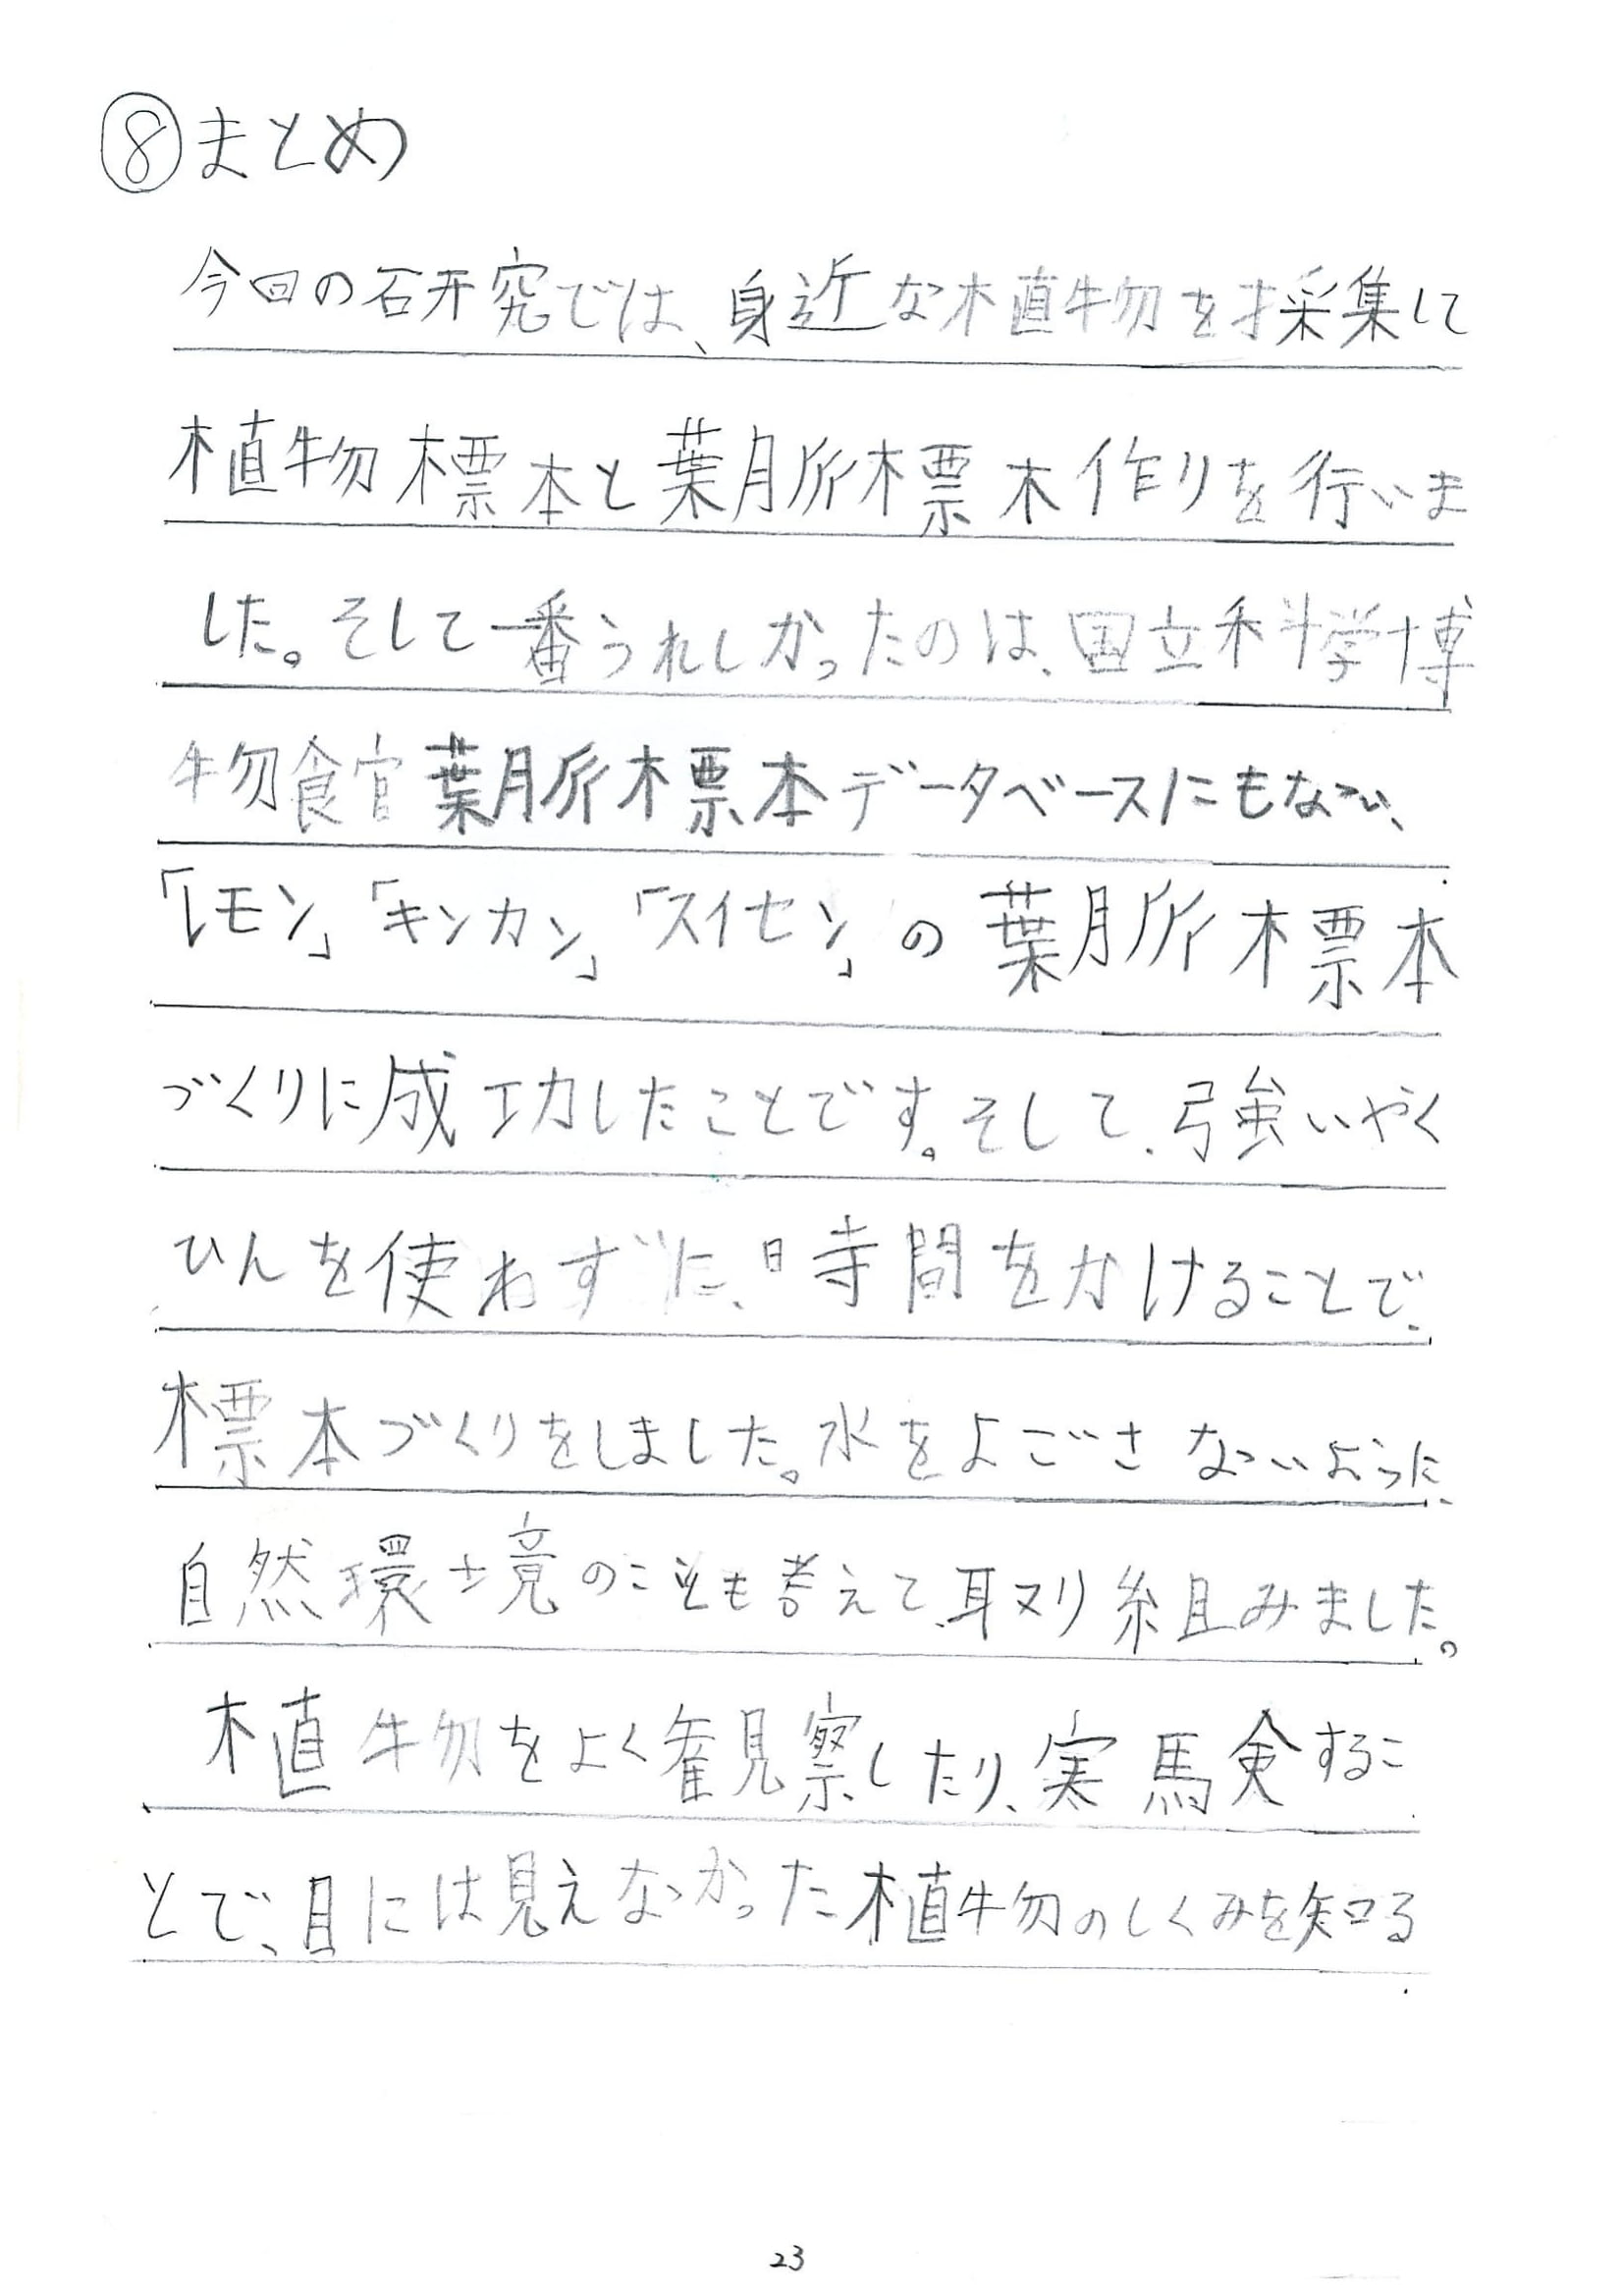 ⑧まとめ
今回の研究では、身近な植物を採集して
植物標本と葉脈標本作りを行いま
した。そして一番うれしかったのは、国立科学博
物館葉脈標本データベースにもない、
「レモン」「キンカン」「スイセン」の葉脈標本
づくりに成功したことです。そして、強いやく
ひんを使わずに、時間をかけることで、
標本づくりをしました。水をよごさないように、
自然環境のことも考えて、取り組みました。
植物をよく観察したり、実験するこ
とで、目には見えなかった植物のしくみを知る
23